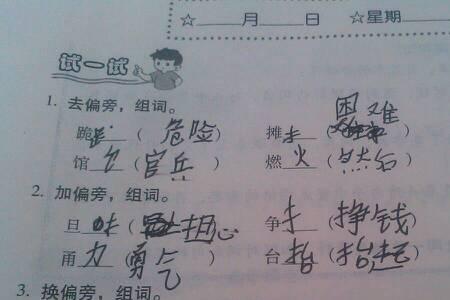 ☆____月____日 ☆星期
试一试
1. 去偏旁，组词。
跪 (危险) 摊 (困难)
馆 (官兵) 燃火 (然后)
2. 加偏旁，组词。
旦 (担心) 争扌 (挣钱)
甬力 (勇气) 台抬 (抬起)
3. 换偏旁，组词。